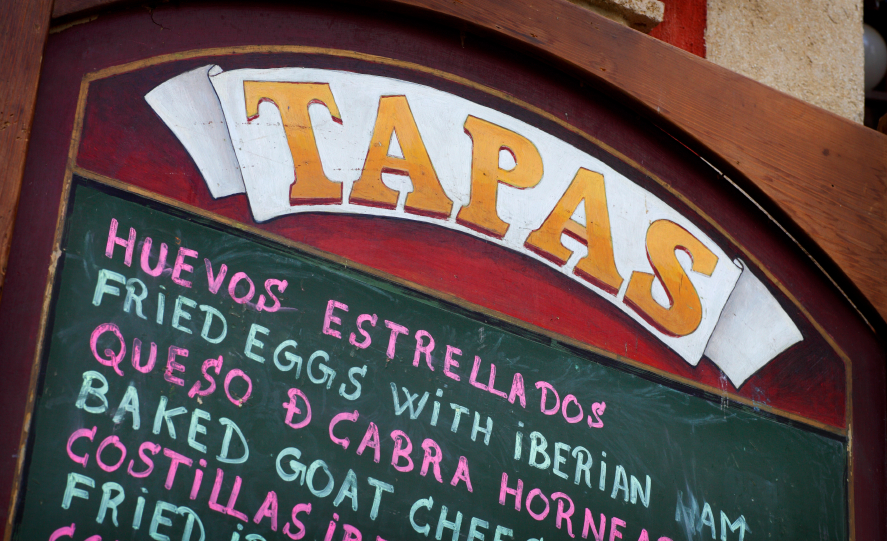 TAPAS
HUEVOS ESTRELLADOS
FRIED EGGS WITH IBERIAN HAM
QUESO Đ CABRA HORNEA
BAKED GOAT CHEE
COSTILLAS
FRIED